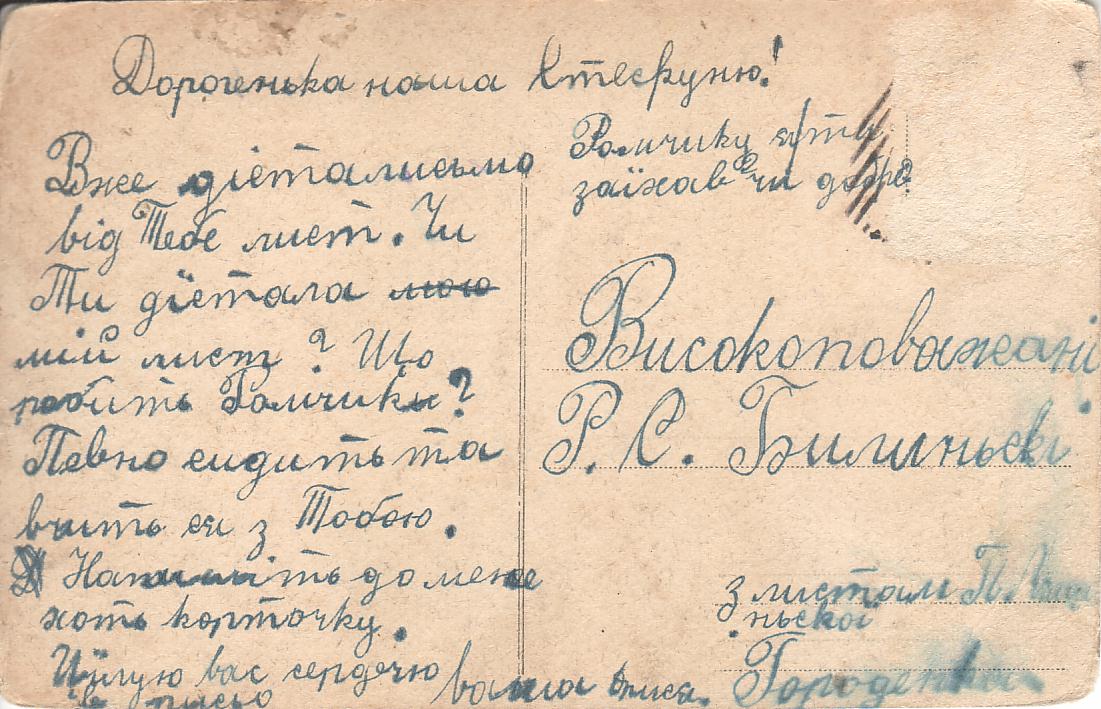 Дорогенька наша
Вже дієталисьмо
від Тебе лист. Чи
Ти дієтала мою
мій лист? Що
робить Ромчик?
Певно сидить та
вчить ся з Тобою.
Напишіть до мене
хоть корточку.
Цїлую вас сердечно
ваша
Ромчику як ти
заїхав чи добре
Високоповажані
Р. С.
з листом П.
ньскої
Городенка